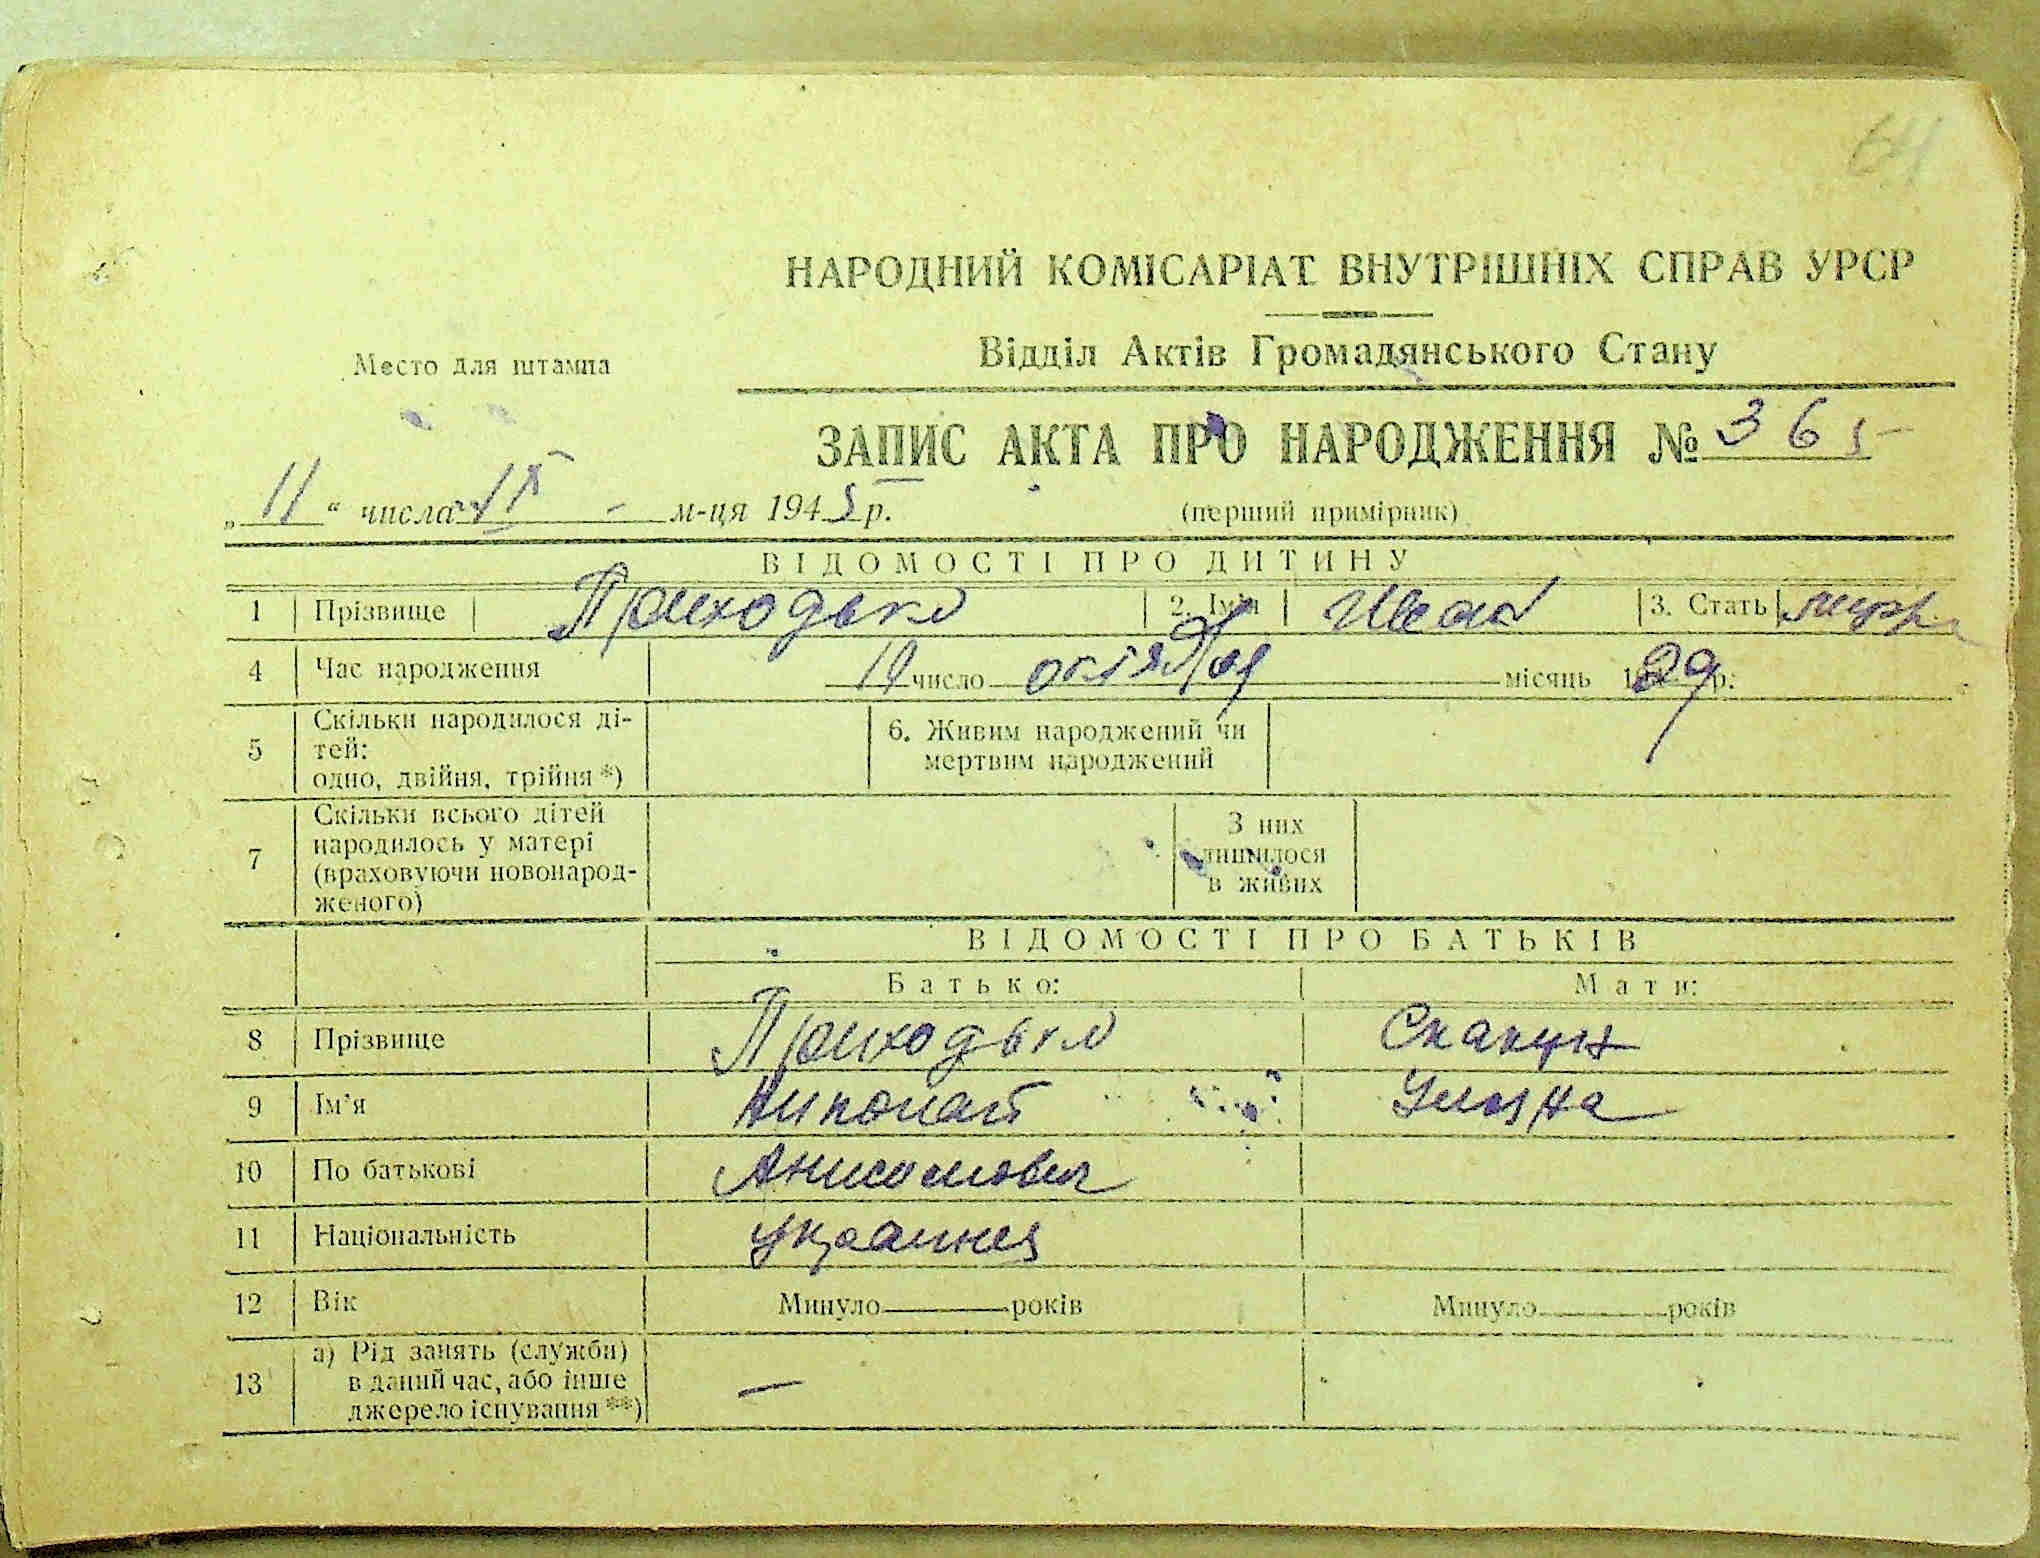 64
НАРОДНИЙ КОМІСАРІАТ ВНУТРІШНІХ СПРАВ УРСР
Место для штампа
Відділ Актів Громадянського Стану
ЗАПИС АКТА ПРО НАРОДЖЕННЯ № 365
„11“ числа IX м-ця 1945 р.
(перший примірник)
ВІДОМОСТІ ПРО ДИТИНУ
1 Прізвище Приходько 2. Ім'я Иван 3. Стать муж
4 Час народження число октября місяць 1929 р.
5 Скільки народилося ді-
тей:
одно, двійня, трійня *)
6. Живим народжений чи
мертвим народжений
7 Скільки всього дітей
народилось у матері
(враховуючи новонарод-
женого)
З них
лишилося
в живих
ВІДОМОСТІ ПРО БАТЬКІВ
Батько: Мати:
8 Прізвище Приходько Скакун
9 Ім'я Николай Уляна
10 По батькові Анисимович
11 Національність украинец
12 Вік Минуло років Минуло років
13 а) Рід занять (служби)
в даний час, або інше
джерело існування **) —